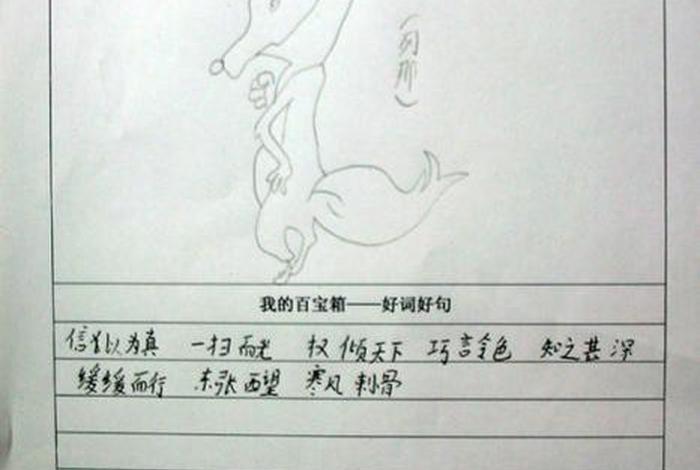 （列那）
我的百宝箱——好词好句
信以为真 一扫而光 权倾天下 巧言令色 知之甚深
缓缓而行 东张西望 寒风刺骨